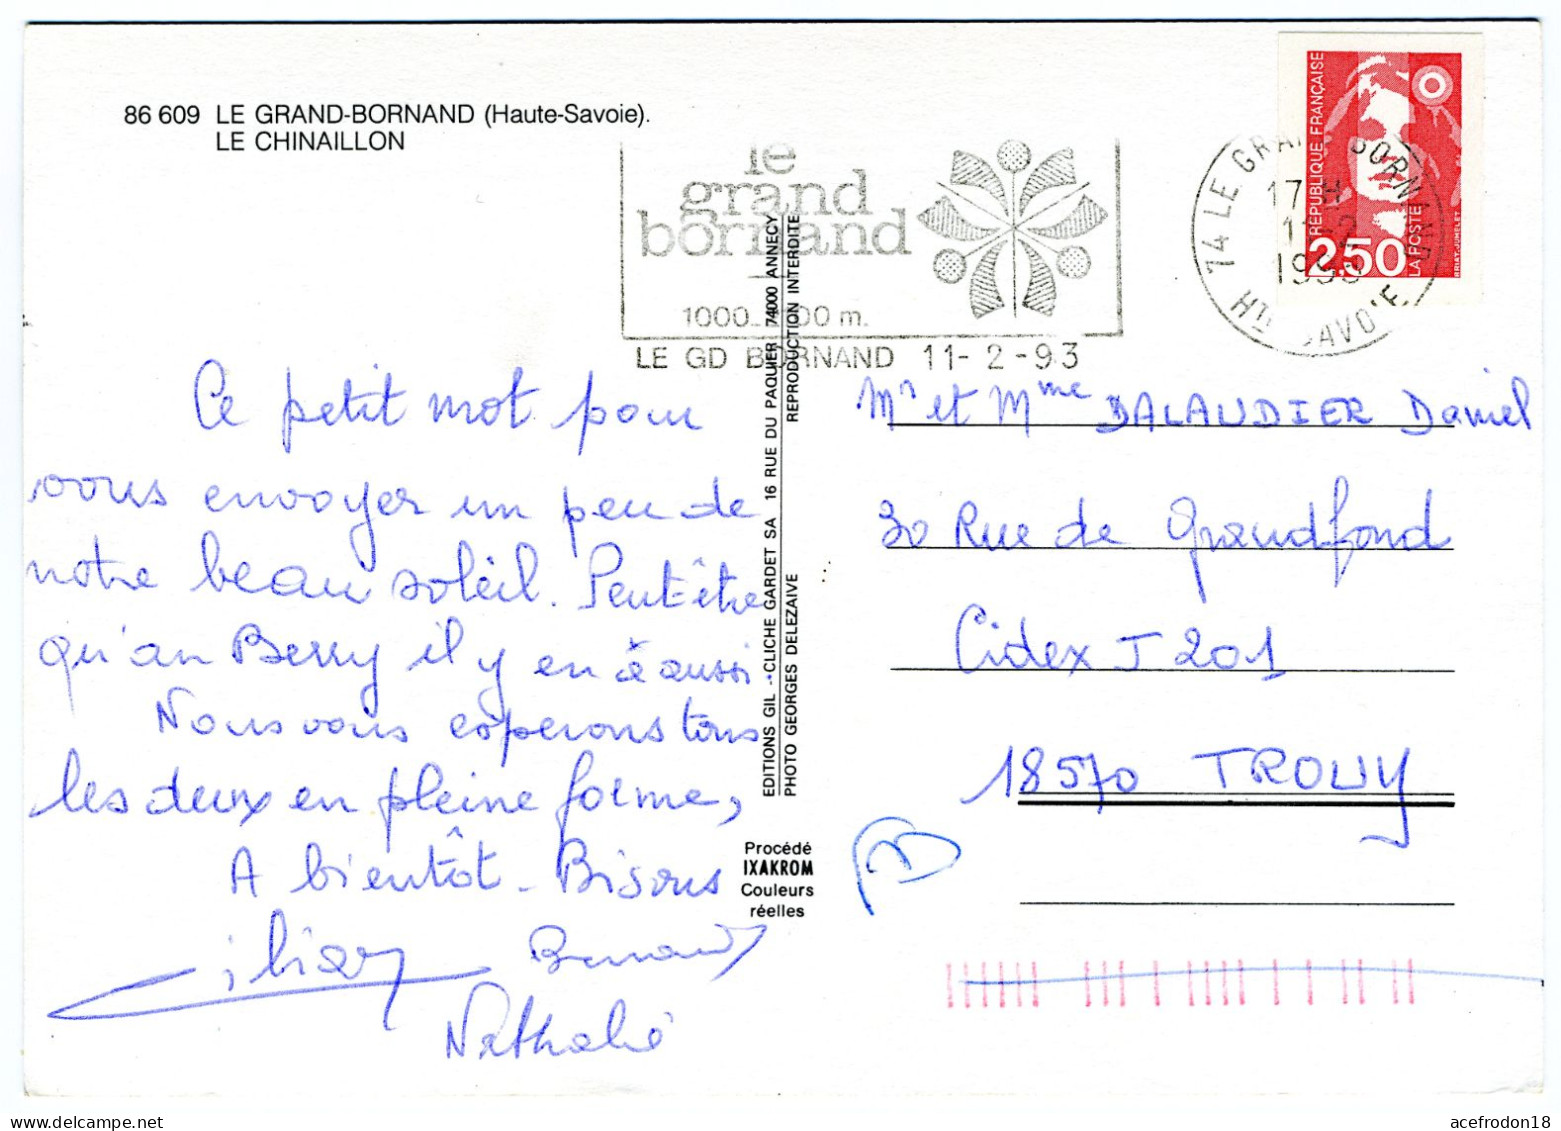 86 609 LE GRAND-BORNAND (Haute-Savoie).
LE CHINAILLON
le
grand
bornand
1000 00 m.
LE GD BORNAND 11-2-93
74 LE GRAND BORNAND
17 H
11-2
1993
HTE SAVOIE
RÉPUBLIQUE FRANÇAISE
2,50
LA POSTE
BRIAT-JUMELET
Ce petit mot pour
vous envoyer un peu de
notre beau soleil. Peut-être
qu'an Berry il y en a aussi
Nous vous esperons tous
les deux en pleine forme,
A bientôt - Bisous
Bernard
Nathalie
EDITIONS GIL - CLICHE GARDET SA 16 RUE DU PAQUIER 74000 ANNECY
PHOTO GEORGES DELEZAIVE REPRODUCTION INTERDITE
Procédé
IXAKROM
Couleurs
réelles
Mr et Mme DALAUDIER Daniel
30 Rue de Grandfond
Cidex J 201
18570 TROUY
acefrodon18